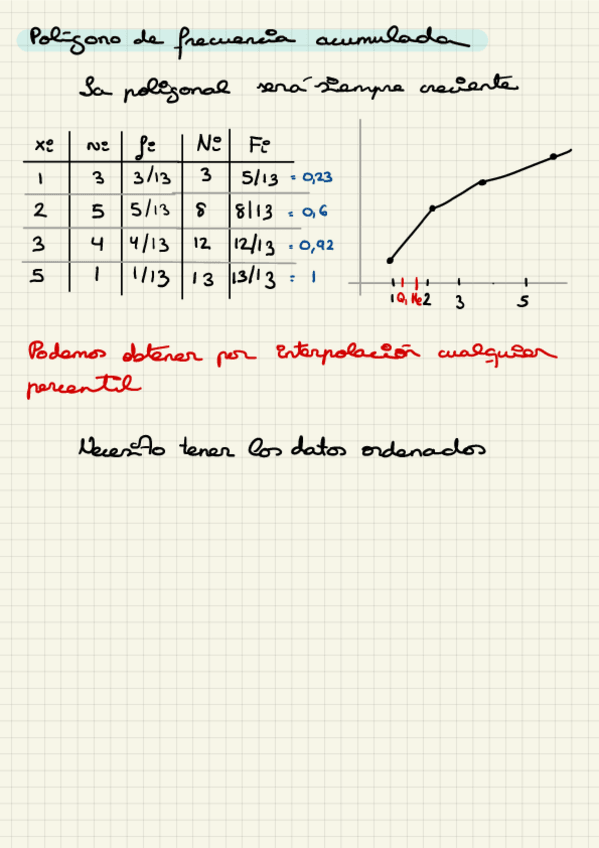 Polígono de frecuencia acumulada
La poligonal será siempre creciente
xi ni fi Ni Fi
1 3 3/13 3 5/13 = 0,23
2 5 5/13 8 8/13 = 0,6
3 4 4/13 12 12/13 = 0,92
5 1 1/13 13 13/13 = 1
1 Q1 Me 2 3 5
Podemos obtener por interpolación cualquier
percentil
Necesito tener los datos ordenados